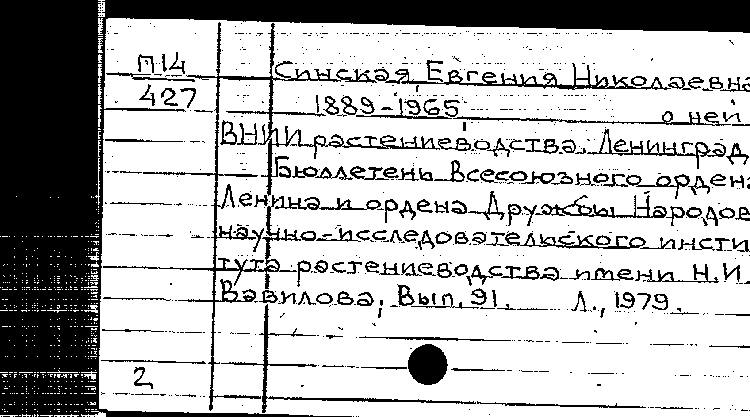 П14
427
Синская, Евгения Николаевна
1889-1965 о ней
ВНИИ растениеводства. Ленинград
Бюллетень Всесоюзного ордена
Ленина и ордена Дружбы Народов
научно-исследовательского инсти
тута растениеводства имени Н.И.
Вавилова, Вып. 91. Л., 1979.
2